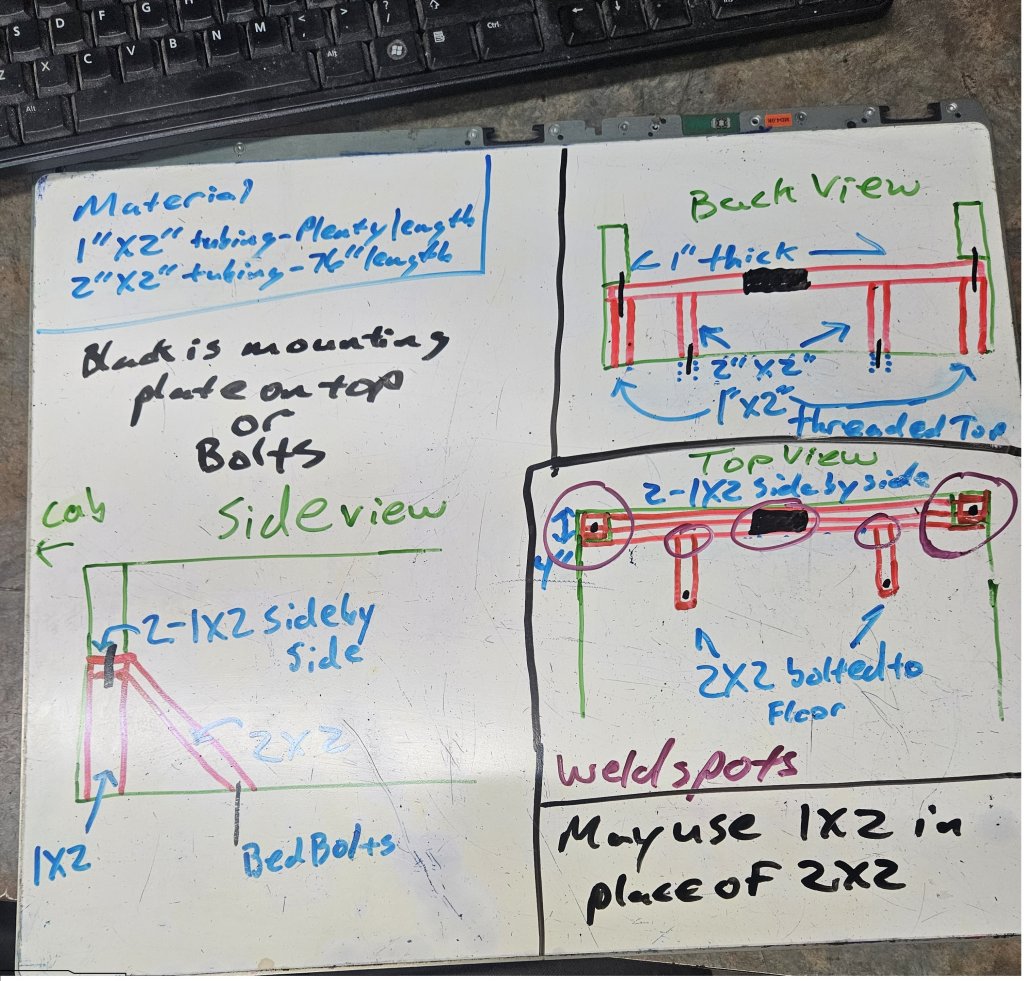 S D F G H J
Z X C V B N M < > ?
Alt Alt Ctrl
Material
1"X2" tubing-Plenty length
2"X2" tubing-76" length
Black is mounting
plate on top
or
Bolts
Back View
1" thick
2"X2"
1"X2"
threaded Top
Top View
2-1X2 side by side
4"
2X2 bolted to
Floor
Weld spots
Side view
cab
2-1X2 side by
side
2X2
1X2
Bed Bolts
May use 1X2 in
place of 2X2